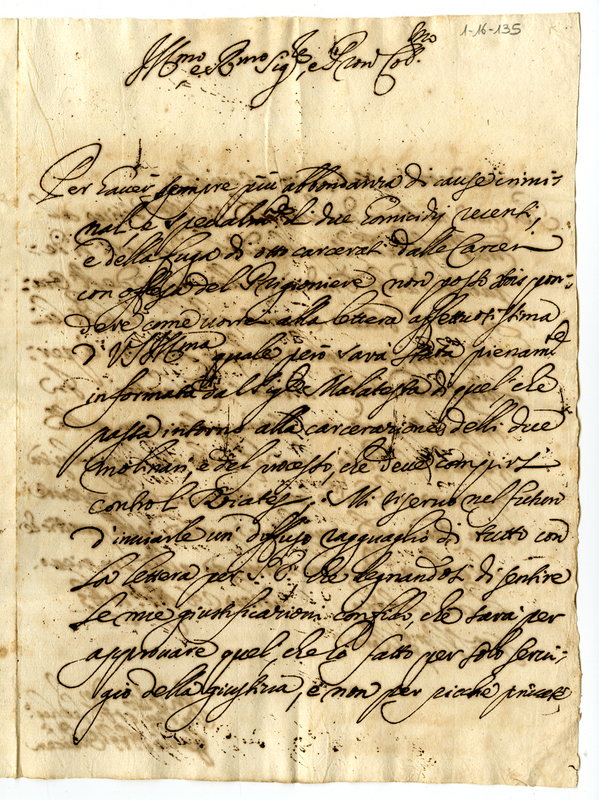 1-16-135
Ill.mo e R.mo Sig.re, e Pron Col.mo
Per haver sempre più abbondanza di cause crimi-
nali, e specialm.te di due homicidij recenti,
e della fuga di otto carcerati dalle Carceri
con offesa del Prigioniere non posso rispon-
dere come vorrei alla lettera affettuosissima
di V.S. Ill.ma quale però sarà stata pienam.te
informata dal Sig.re Malatesta di quel che
passa intorno alla carceratione delli due
Molinari, e del processo, che deve compirsi
contro l Mi riservo nel futuro
d'inviarle un diffuso ragguaglio di tutto con
la lettera per S. E. che degnandosi di sentire
le mie giustificazioni confido, che sarà per
approvare quel che io fatto per solo servi-
gio della giustitia, e non per picche